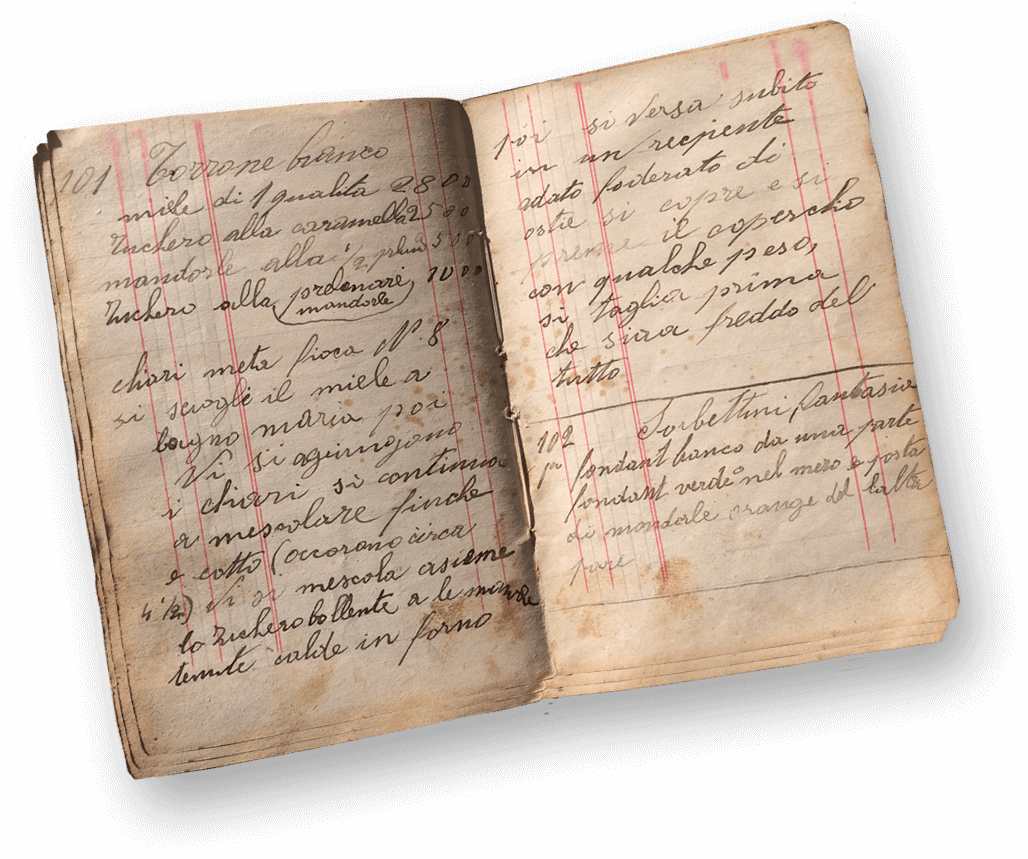 101 Torrone bianco
miele di 1 qualita 2800
Zuchero alla caramella 2500
mandorle alla 1/2 500
Zuchero alla (prelenare
mandorle) 1000
chiari meta fioca N. 8
si scioglie il miele a
bagno maria poi
Vi si agiungono
i chiari si continua
a mescolare finche
e cotto (occorono circa
4 1/2 ) Vi si mescola asieme
lo Zuchero bollente a le mandorle
tenute calde in forno
poi si versa subito
in un recipiente
adato foderato di
ostie si copre e si
preme il coperchio
con qualche peso,
si taglia prima
che sira freddo del
tutto
102 Sorbettini fantasia
fondant bianco da una parte
fondant verde nel mezo e posta
di mandorle orange dal laltra